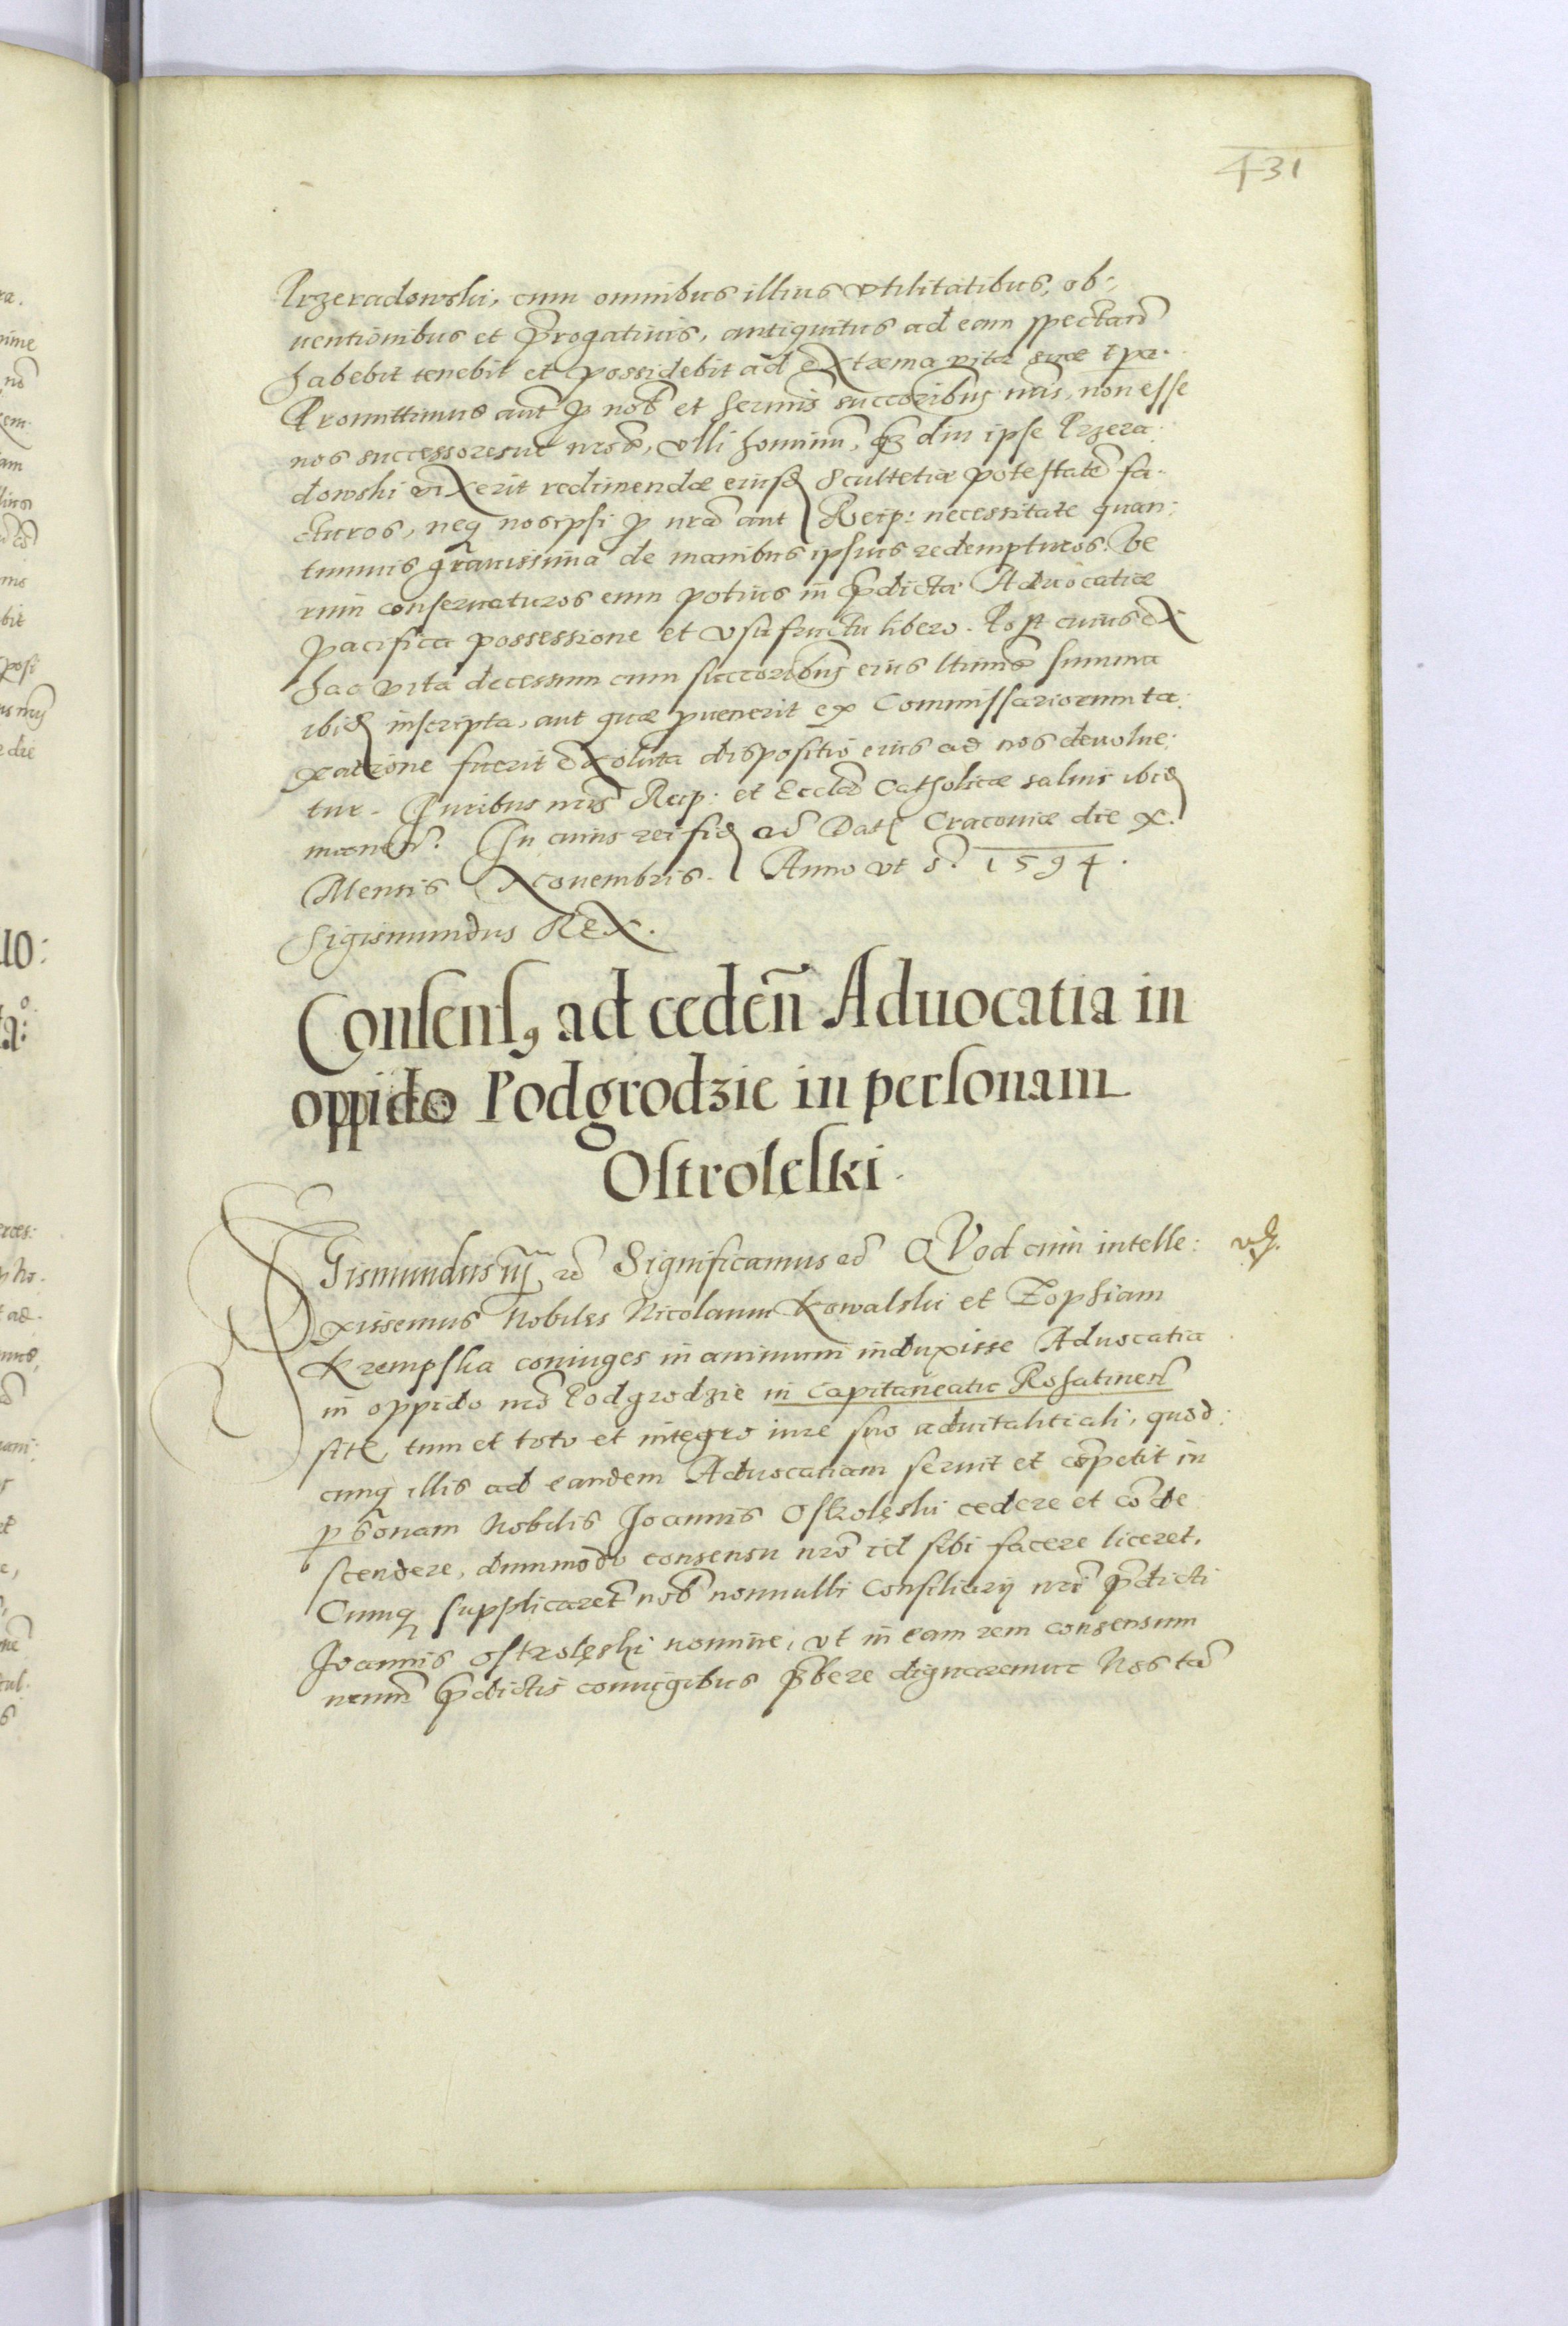 431
Przeradowski, cum omnibus illius vtilitatibus, ob:
uentionibus et p̃rogatiuis, antiquitus ad eam spectañ
habebit tenebit et possidebit ad extrema vitæ suæ tpa.
Promittimus aut̃ p nob̃ et sermis̃ succoribus nris̃, non esse
nos successoresue nros̃, vlli hominũ, q̃diu ipse Przera:
dowski vixerit redimendæ eiusd Scultetiæ potestatẽ fa:
cturos, neq nosipsi p nrã aut Reip: necessitate quan:
tumuis grauissima de manibus ipsius redempturos. Ve
rum conseruaturos eum potius in p̃dicta Aduocatiæ
pacifica possessione et vsufructu libero. Post cuius ex
hac vita decessum cum succoribus eius ltimis̃ summa
ibid inscripta, aut quæ puenerit ex Commissariorum ta:
xatione fuerit exoluta dispositio eius ad nos deuolue:
tur. Iuribus nris̃ Reip: et Eccl̃æ Catholicæ saluis ibid
maneñ. In cuius rei fid ec̃ Dat Cracouiæ die x.
Mensis Nouembris. Anno vt s. 1594.
Sigismundus Rex.
Consens9 ad cedeñ Aduocatia in
oppido Podgrodzie in personam
Ostrolęski.
SIGismundus iij ec̃ Significamus ec̃ QVod cum intelle:
xissemus Nobiles Nicolaum Kowalski et Zophiam
Krempska coniuges in animum induxisse Aduocatia
in oppido nrõ Podgrodzie in Capitaneatu Rohatineñ
sit, tum et toto et integro iure suo aduitalitiali, quod:
cunq illis ad eandem Aduocatiam seruit et cõpetit in
psonam Nobilis Joannis Ostrolęski cedere et cõde:
scendere, dummodo consensu nrõ id sibi facere liceret.
Cumq supplicareñt nob̃ nonnulli Consiliarij nrĩ p̃dicti
Joannis Ostrolęski nomine, vt in eam rem consensum
nrum̃ p̃dictis coniugibus p̃bere dignaremur Nos tã